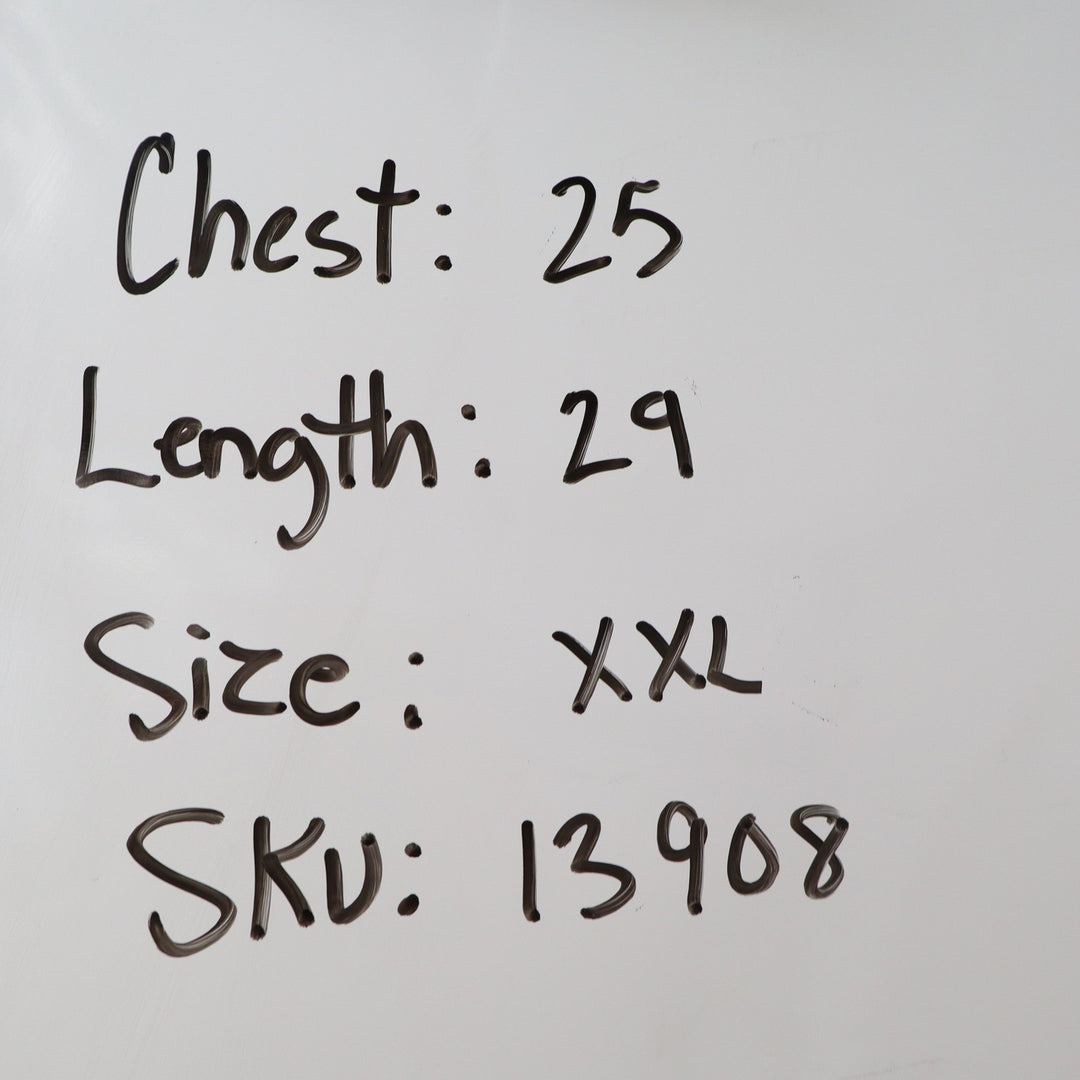 Chest: 25
Length: 29
Size: XXL
SKU: 13908